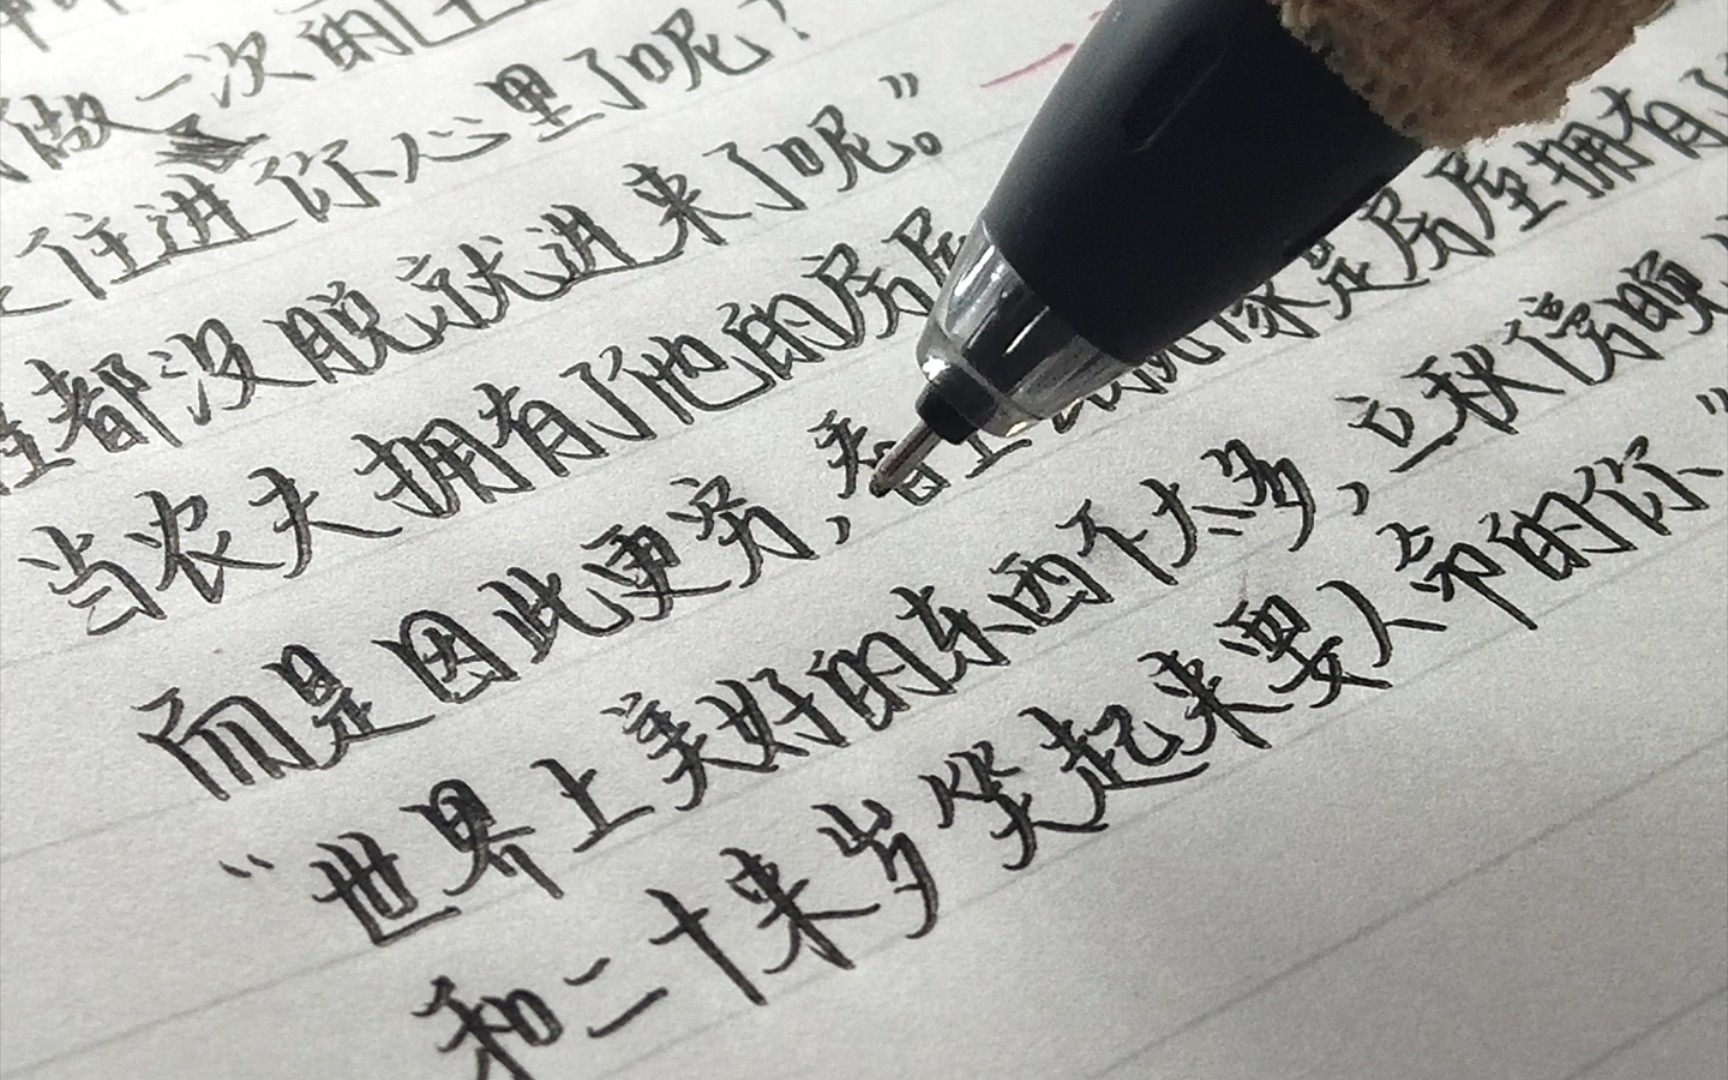 做一次的
住进你心里了呢？
都没脱就进来了呢。”
当农夫拥有了他的房屋 家是房屋拥有了
而是因此更穷，看上
“世界上美好的东西不太多，立秋傍晚
和二十来岁笑起来要人命的你”